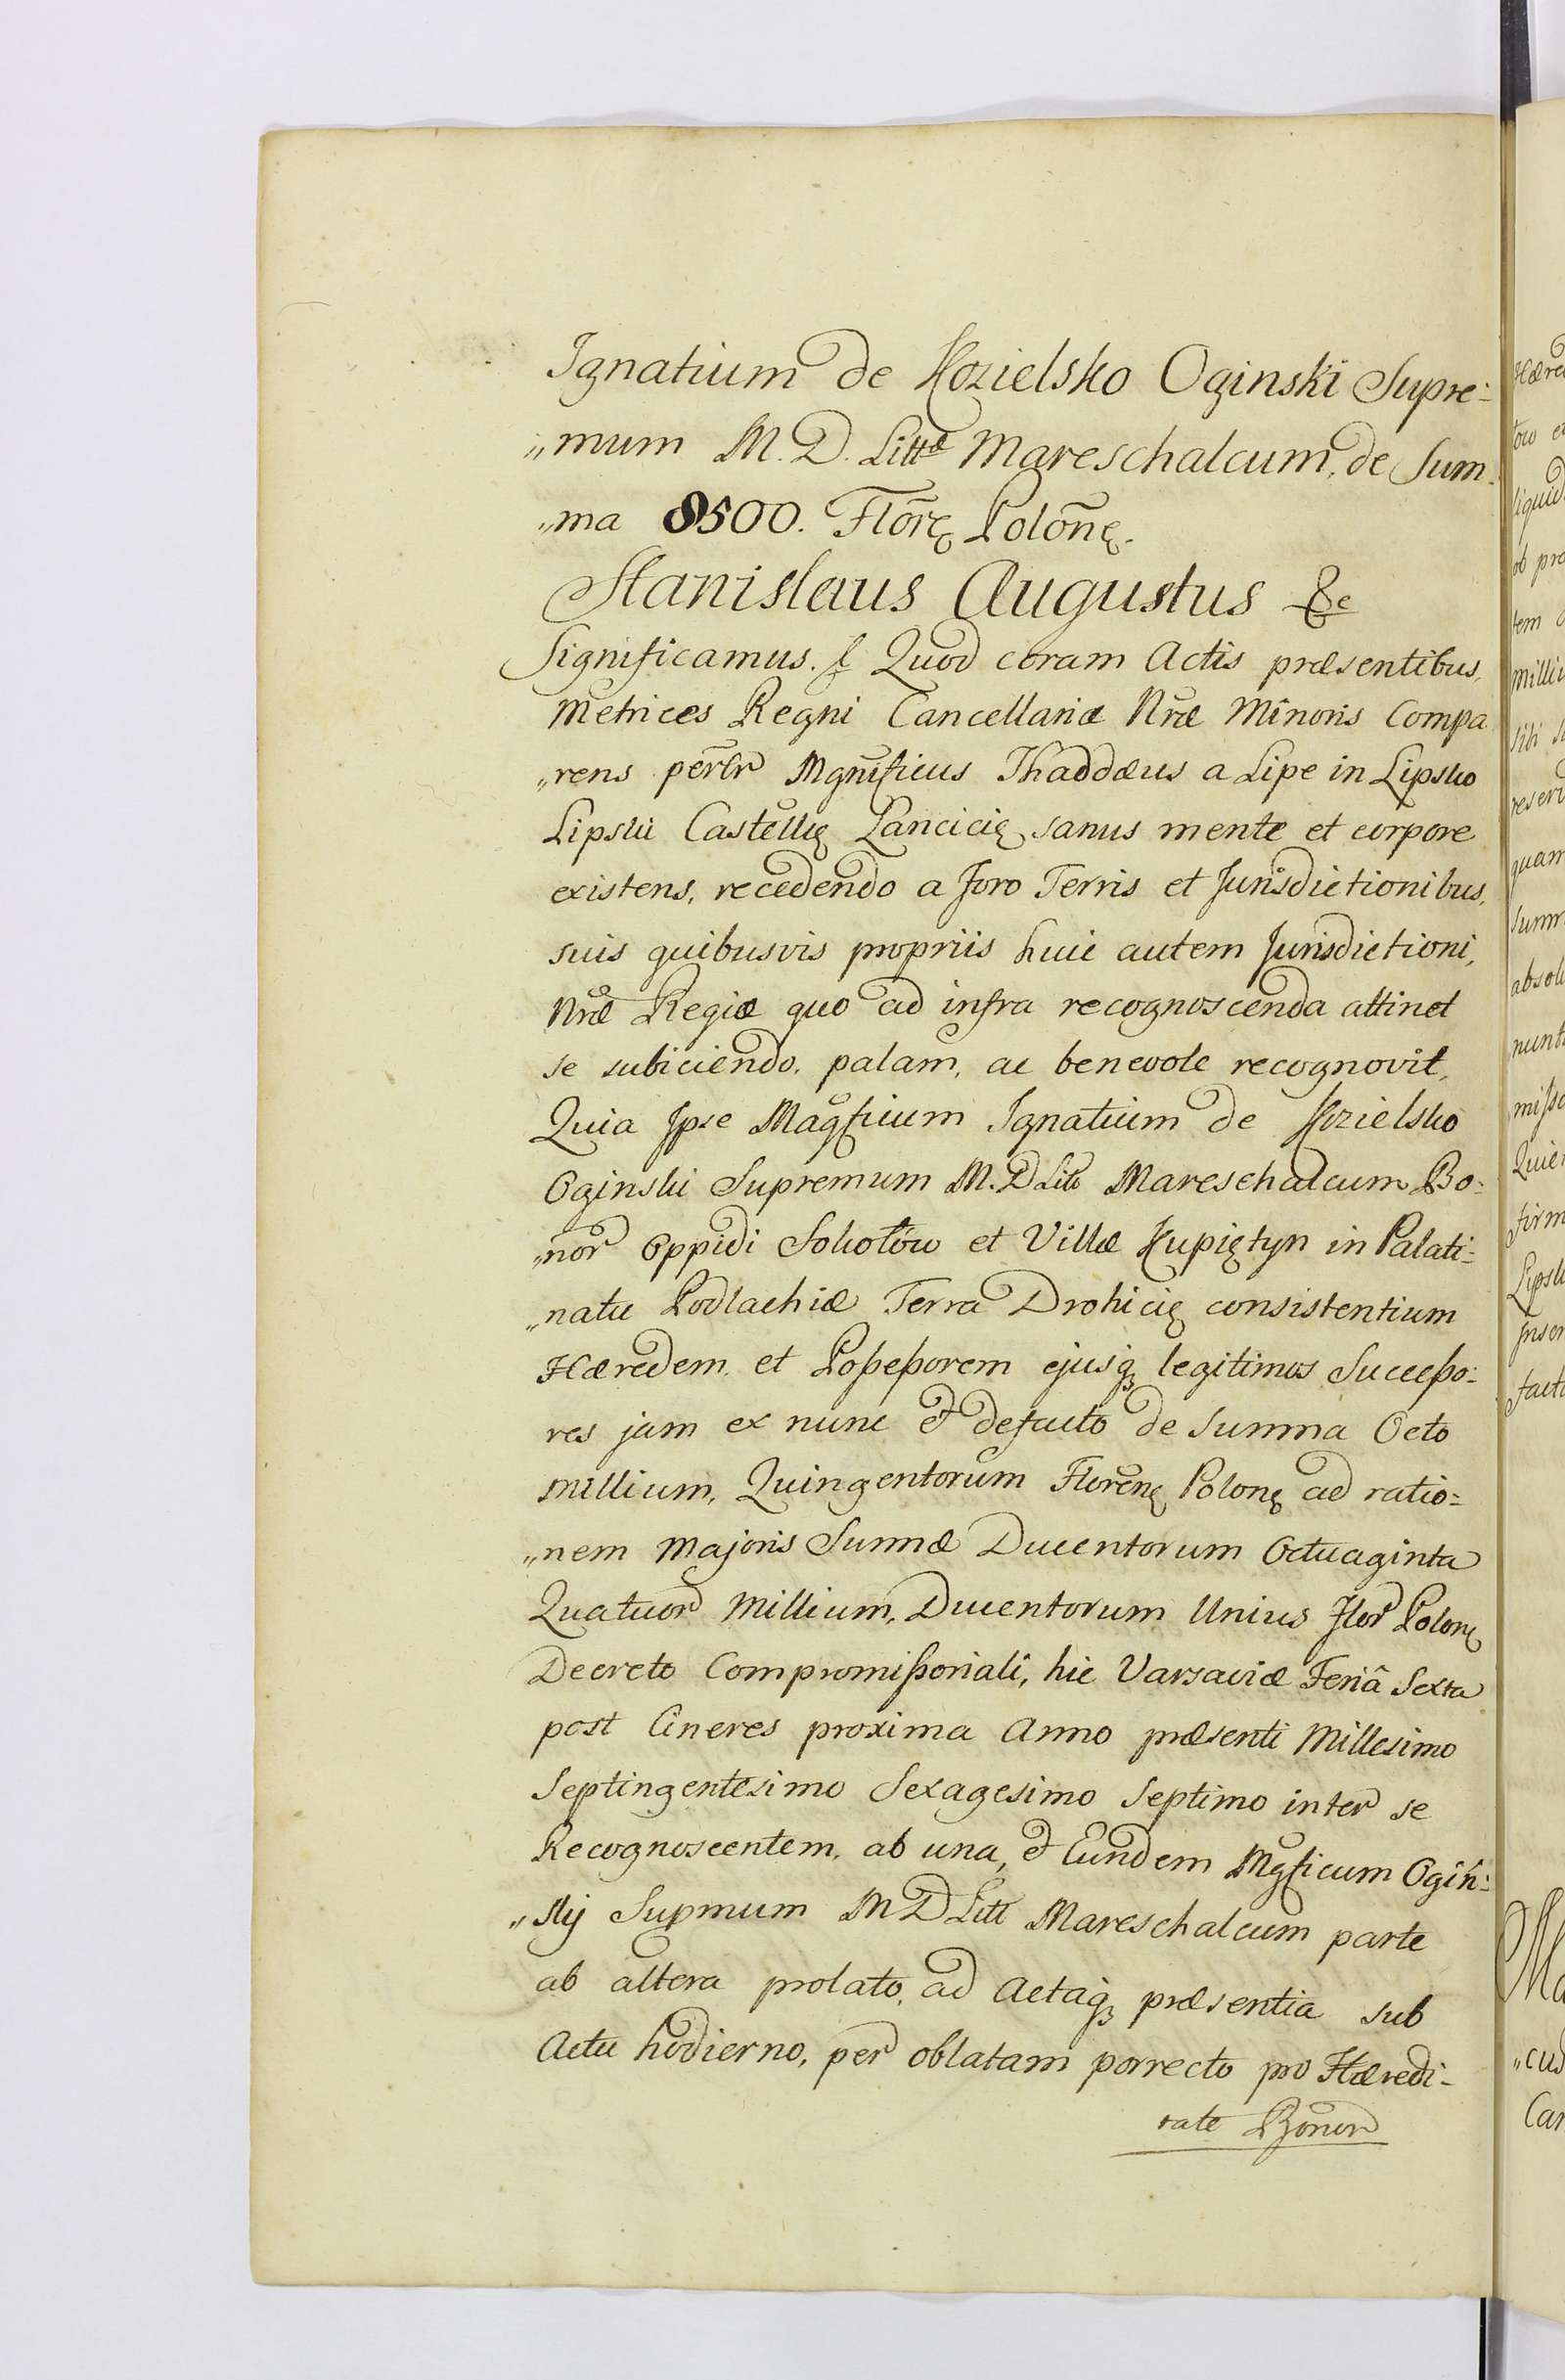 Ignatium de Kozielsko Oginski Supre:
„mum M. D. Littæ Mareschalcum, de Sum-
„ma 8500. Flōrę Polōnę.
Stanislaus Augustus &c
Significamus. & Quod coram Actis præsentibus,
Metrices Regni Cancellariæ Nræ Minoris Compa
„rens perslr Mgnificus Thaddæus a Lipe in Lipsko
Lipski Castellę Lancicię sanus mente et corpore
existens, recedendo a foro Terris et Jurisdictionibus,
suis quibusvis propriis huic autem Jurisdictioni,
Nræ Regiæ quo ad infra recognoscenda attinet
se subiciendo, palam, ac benevole recognovit,
Quia Ipse Magficum Ignatium de Kozielsko
Oginski Supremum M. D Litt Mareschalcum Bo:
„nor Oppidi Sokołów et Villæ Kupiętyn in Palati:
„natu Podlachiæ Terra Drohicię consistentium
Hæredem et Poßeßorem ejusq legitimos Succeßo:
res jam ex nunc et defacto de Summa Octo
Millium, Quingentorum Florenę Polonę ad ratio:
„nem Majoris Summæ Ducentorum Octuaginta
Quatuor Millium, Ducentorum Unius Flor Polonę
Decreto Compromißoriali, hic Varsaviæ Feriâ Sexta
post Cineres proxima Anno præsenti Millesimo
Septingentesimo Sexagesimo Septimo inter se
Recognoscentem, ab una, et Eundem Mgficum Ogiń:
„skij Supmum M D Litt Mareschalcum parte
ab altera prolato, ad Actaq præsentia sub
Actu hodierno, per oblatam porrecto pro Hæredi-
tate Bonor